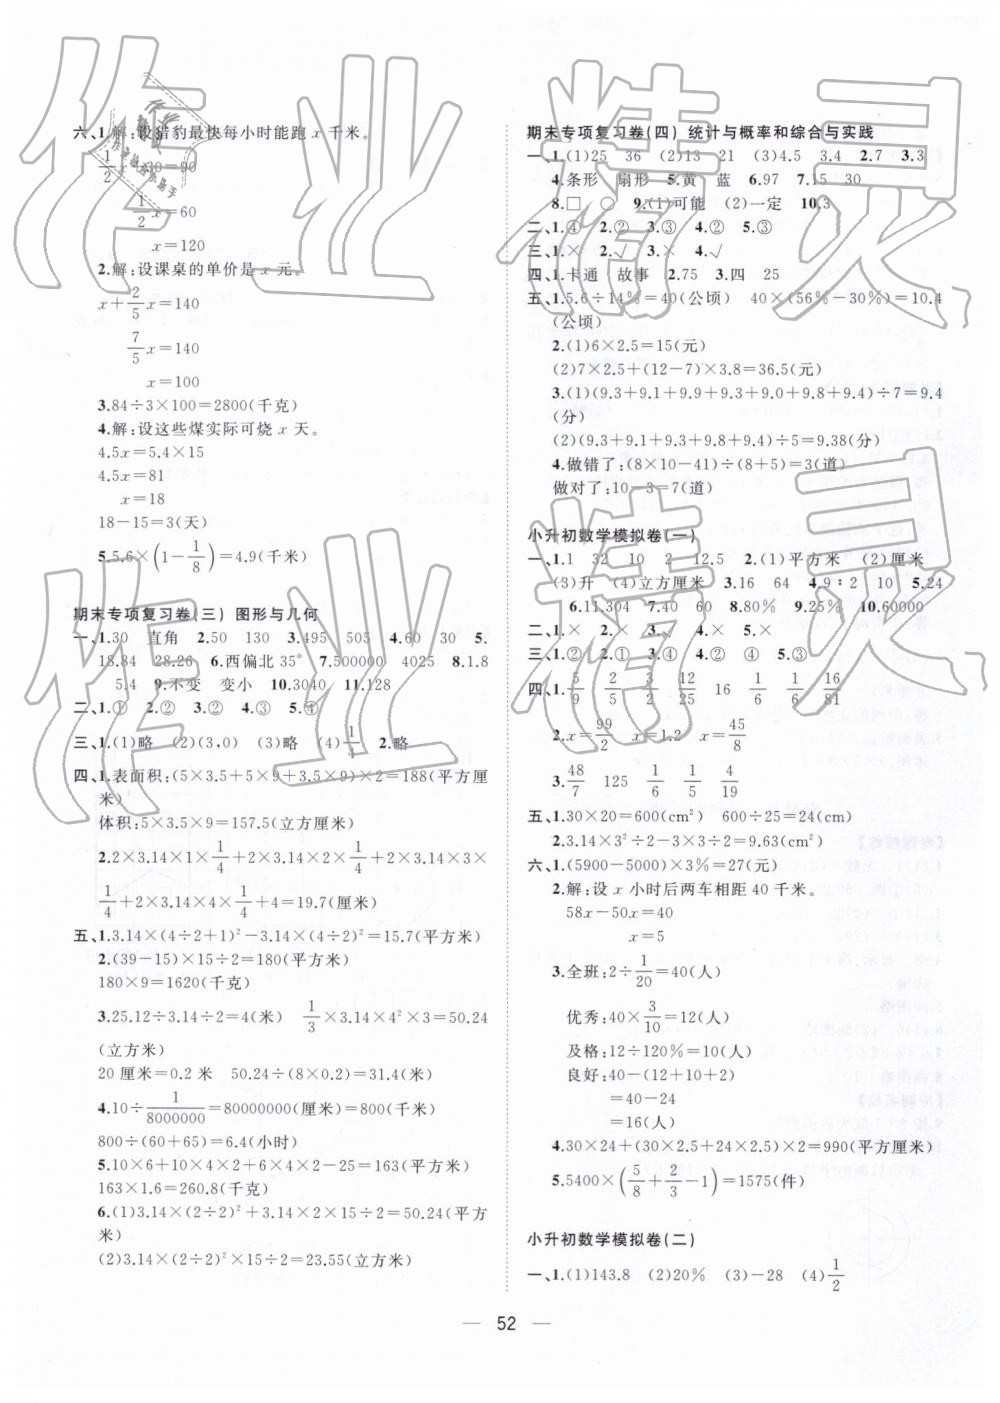 六、1.解:设猎豹最快每小时能跑 x 千米。
1/2x-30=90
1/2x=60
x=120
2.解:设课桌的单价是 x 元。
x+2/5x=140
7/5x=140
x=100
3.84÷3×100=2800(千克)
4.解:设这些煤实际可烧 x 天。
4.5x=5.4×15
4.5x=81
x=18
18-15=3(天)
5.5.6×(1-1/8)=4.9(千米)
期末专项复习卷(三) 图形与几何
一、1.30 直角 2.50 130 3.495 505 4.60 30 5.
18.84 28.26 6.西偏北 35° 7.500000 4025 8.1.8
5.4 9.不变 变小 10.3040 11.128
二、1.① 2.② 3.② 4.③ 5.④
三、1.(1)略 (2)(3,0) (3)略 (4)1/4 2.略
四、1.表面积:(5×3.5+5×9+3.5×9)×2=188(平方厘
米)
体积:5×3.5×9=157.5(立方厘米)
2.2×3.14×1×1/4+2×3.14×2×1/4+2×3.14×3×
1/4+2×3.14×4×1/4+4=19.7(厘米)
五、1.3.14×(4÷2+1)²-3.14×(4÷2)²=15.7(平方米)
2.(39-15)×15÷2=180(平方米)
180×9=1620(千克)
3.25.12÷3.14÷2=4(米) 1/3×3.14×4²×3=50.24
(立方米)
20 厘米=0.2 米 50.24÷(8×0.2)=31.4(米)
4.10÷1/8000000=80000000(厘米)=800(千米)
800÷(60+65)=6.4(小时)
5.10×6+10×4×2+6×4×2-25=163(平方米)
163×1.6=260.8(千克)
6.(1)3.14×(2÷2)²+3.14×2×15÷2=50.24(平方
米)
(2)3.14×(2÷2)²×15÷2=23.55(立方米)
期末专项复习卷(四) 统计与概率和综合与实践
一、1.(1)25 36 (2)13 21 (3)4.5 3.4 2.7 3.3
4.条形 扇形 5.黄 蓝 6.97 7.15 30
8.□ ○ 9.(1)可能 (2)一定 10.3
二、1.④ 2.② 3.③ 4.② 5.③
三、1.× 2.√ 3.× 4.√
四、1.卡通 故事 2.75 3.四 25
五、1.5.6÷14%=40(公顷) 40×(56%-30%)=10.4
(公顷)
2.(1)6×2.5=15(元)
(2)7×2.5+(12-7)×3.8=36.5(元)
3.(1)(9.3+9.1+9.9+9.3+9.0+9.8+9.4)÷7=9.4
(分)
(2)(9.3+9.1+9.9+9.3+9.4)÷5=9.38(分)
4.做错了:(8×10-41)÷(8+5)=3(道)
做对了:10-3=7(道)
小升初数学模拟卷(一)
一、1.1 32 10 2 12.5 2.(1)平方米 (2)厘米
(3)升 (4)立方厘米 3.16 64 4.9∶2 10 5.24
6.11.304 7.40 60 8.80% 9.25% 10.60000
二、1.× 2.× 3.√ 4.× 5.×
三、1.② 2.① 3.④ 4.② ④ 5.③
四、1.5/9 2/5 3/2 12/25 16 1/6 1/6 16/81
2.x=99/2 x=1.2 x=45/8
3.48/7 125 1/6 1/5 4/19
五、1.30×20=600(cm²) 600÷25=24(cm)
2.3.14×3²÷2-3×3÷2=9.63(cm²)
六、1.(5900-5000)×3%=27(元)
2.解:设 x 小时后两车相距 40 千米。
58x-50x=40
x=5
3.全班:2÷1/20=40(人)
优秀:40×3/10=12(人)
及格:12÷120%=10(人)
良好:40-(12+10+2)
=40-24
=16(人)
4.30×24+(30×2.5+24×2.5)×2=990(平方厘米)
5.5400×(5/8+2/3-1)=1575(件)
小升初数学模拟卷(二)
一、1.(1)143.8 (2)20% (3)-28 (4)1/2
— 52 —
作业精灵
作业精灵